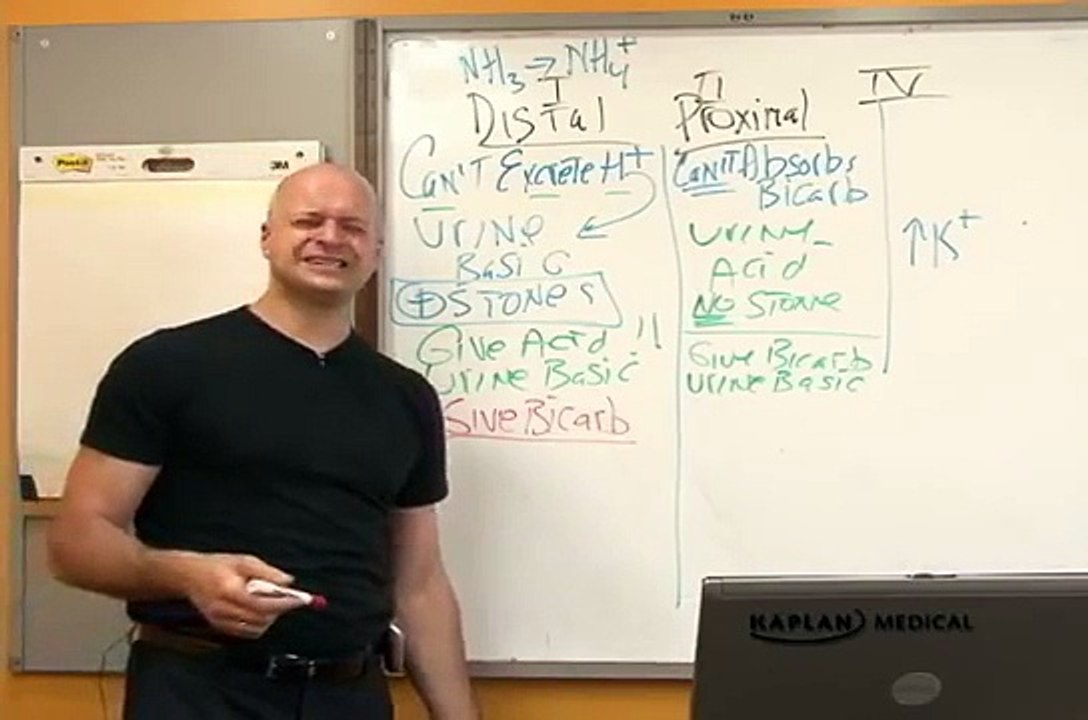 Post-it
3M
NH3 → NH4+
I
Distal
Can't Excrete H+
Urine
Basic
⊕ Stones
Give Acid !!
Urine Basic
Give Bicarb
II
Proximal
Can't Absorb
Bicarb
Urine
Acid
No Stone
Give Bicarb
Urine Basic
IV
↑K+
KAPLAN MEDICAL